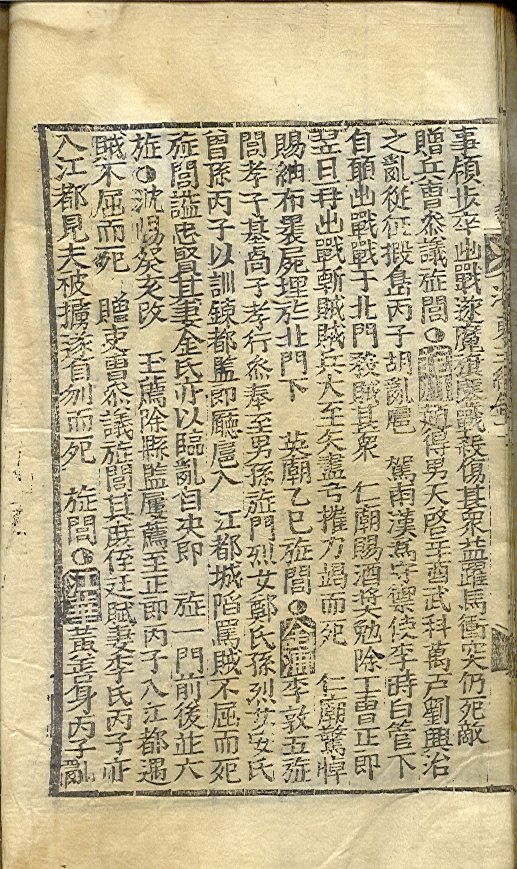 事領步卒出戰遂麾旗鏖戰殺傷甚衆益躍馬衝突仍死敵
贈兵曹參議旌閭 趙得男天啓辛酉武科萬戶劉興治
之亂從征椵島丙子 胡亂扈 駕南漢爲守禦使李時白管下
自願出戰戰于北門 殺賊甚衆 仁廟賜酒奬勉除工曹正郞
翌日再出戰斬賊賊兵大至矢盡弓摧力竭而死 仁廟驚悼
賜紬布褁屍埋於北門下 英廟乙巳旌閭 金浦 李敦五旌
閭孝子基卨子孝行參奉至男孫旌門烈女鄭氏孫烈女安氏
曾孫丙子以訓鍊都監郞廳扈入 江都城陷罵賊不屈而死
旌閭謚忠賢其妻金氏亦以臨亂自决卽 旌一門前後並六
旌 沈 癸亥改 玉薦除縣監屢薦至正郞丙子入江都遇
賊不屈而死 贈吏曹參議旌閭其庶侄廷 妻李氏丙子亦
入江都見夫被擄遂自刎而死 旌閭 江華 黃善身丙子亂